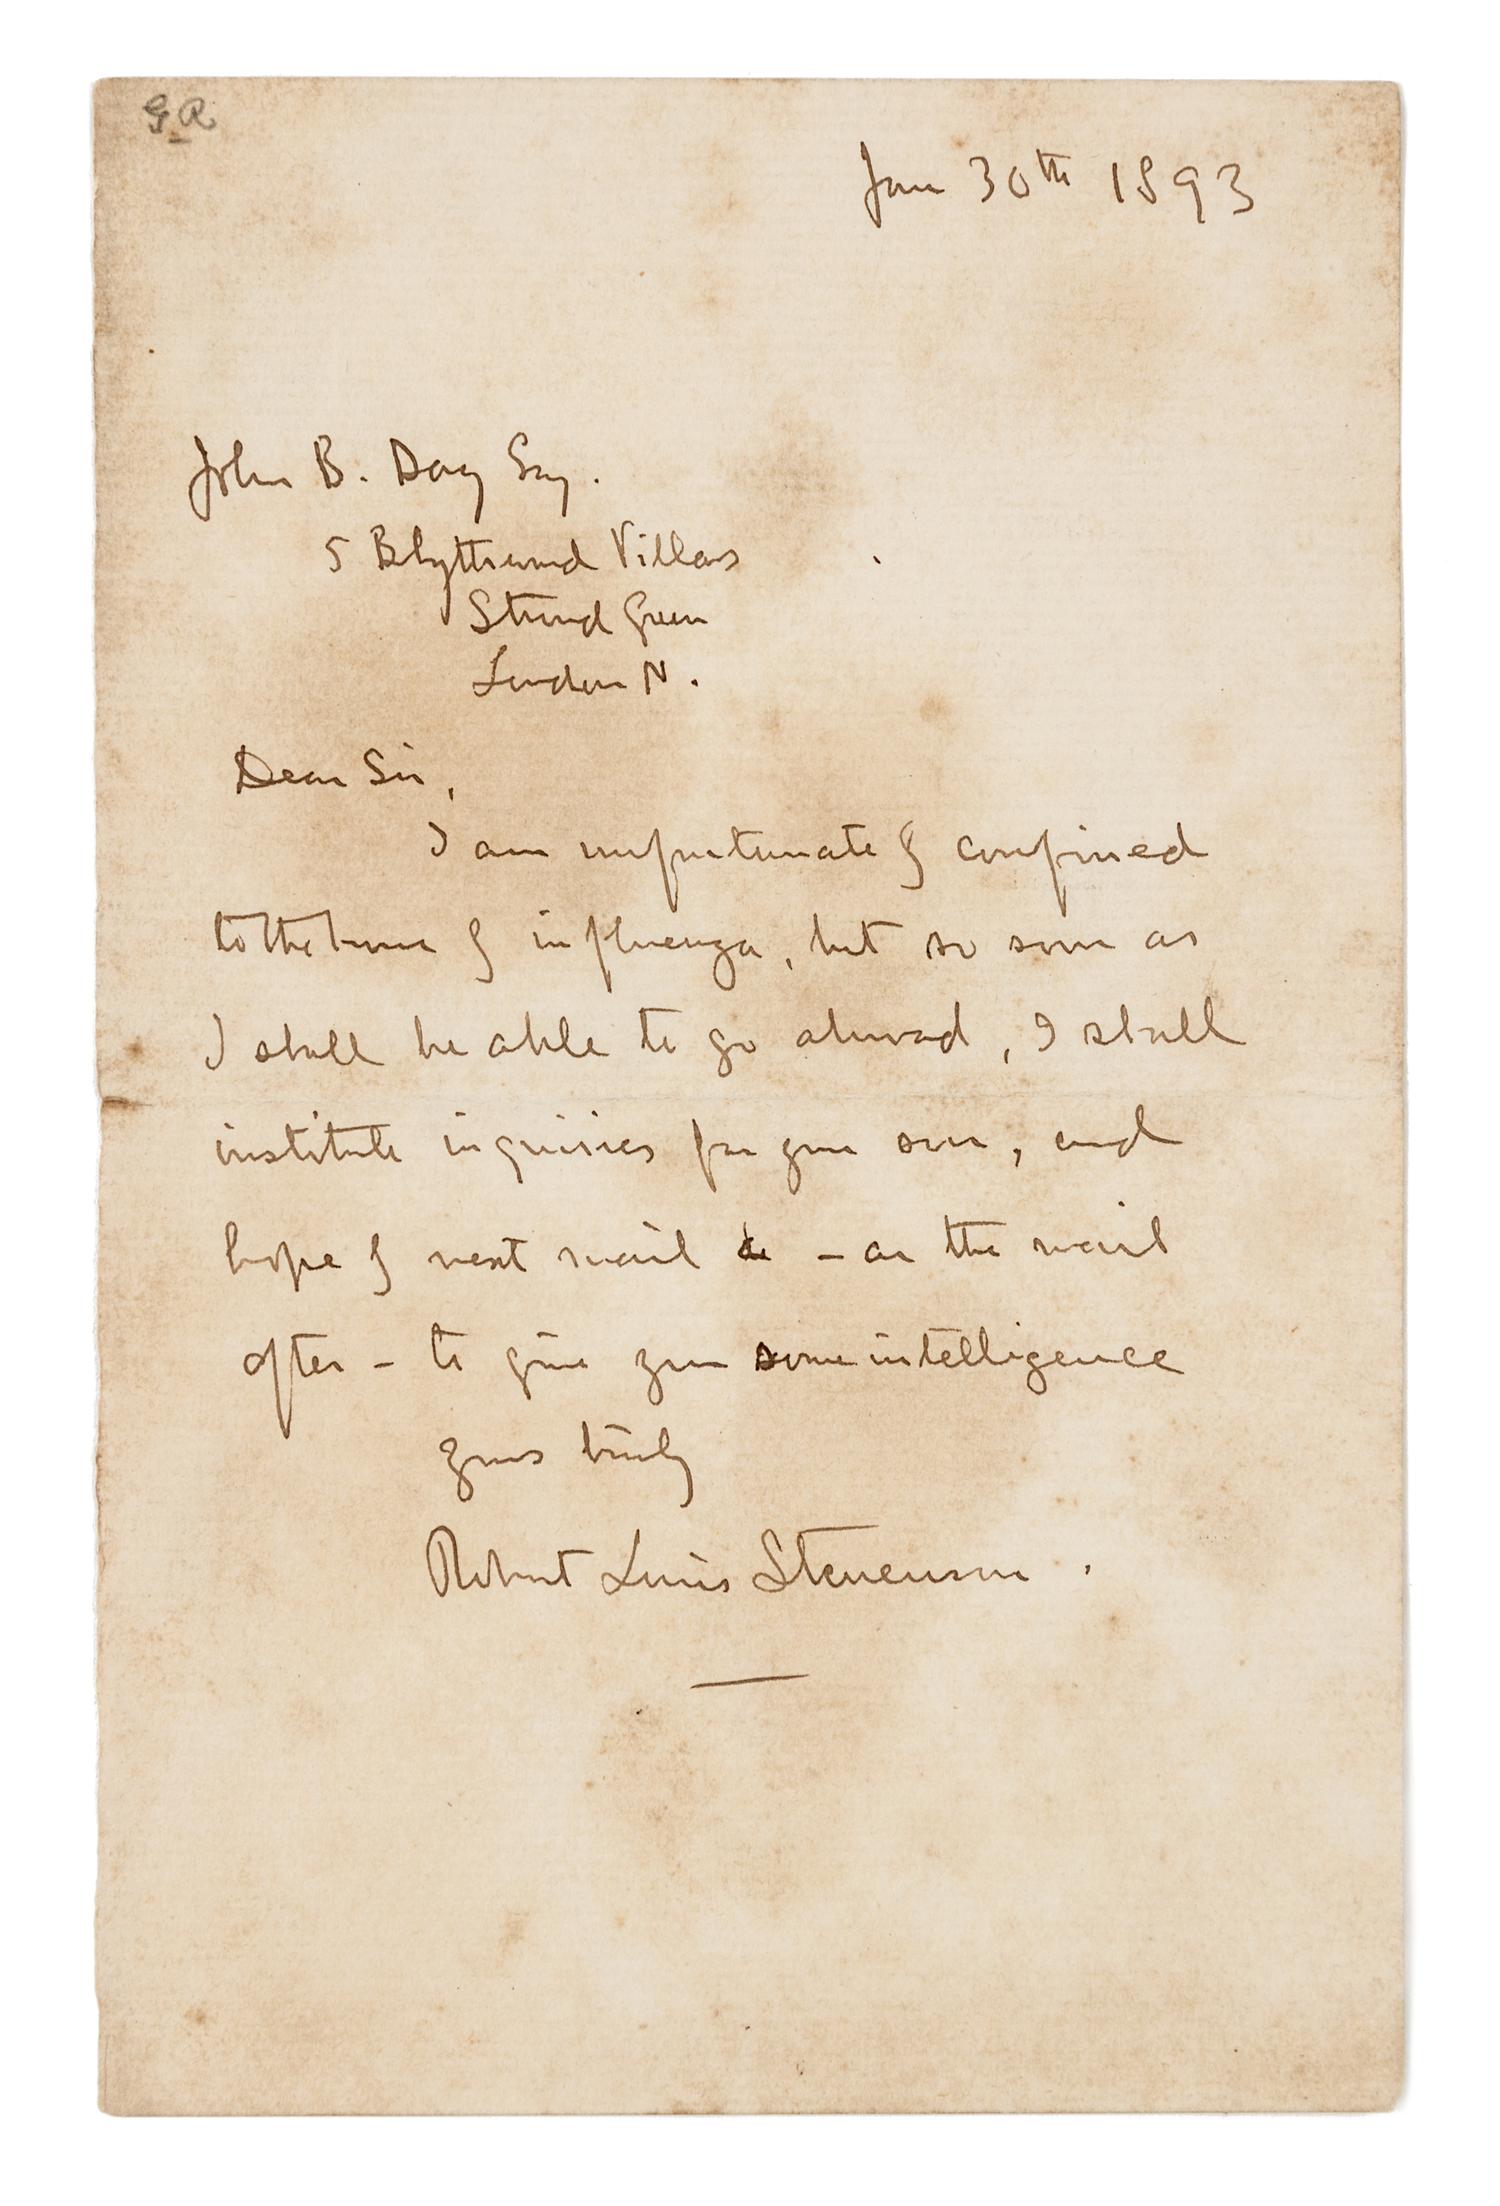 GR
Jan 30th 1893
John B. Day Esq.
5 Blythwood Villas
Stroud Green
London N.
Dear Sir,
I am unfortunately confined
to the house by influenza, but so soon as
I shall be able to go abroad, I shall
institute inquiries for your son, and
hope by next mail - or the mail
after - to give you some intelligence
yours truly
Robert Louis Stevenson.